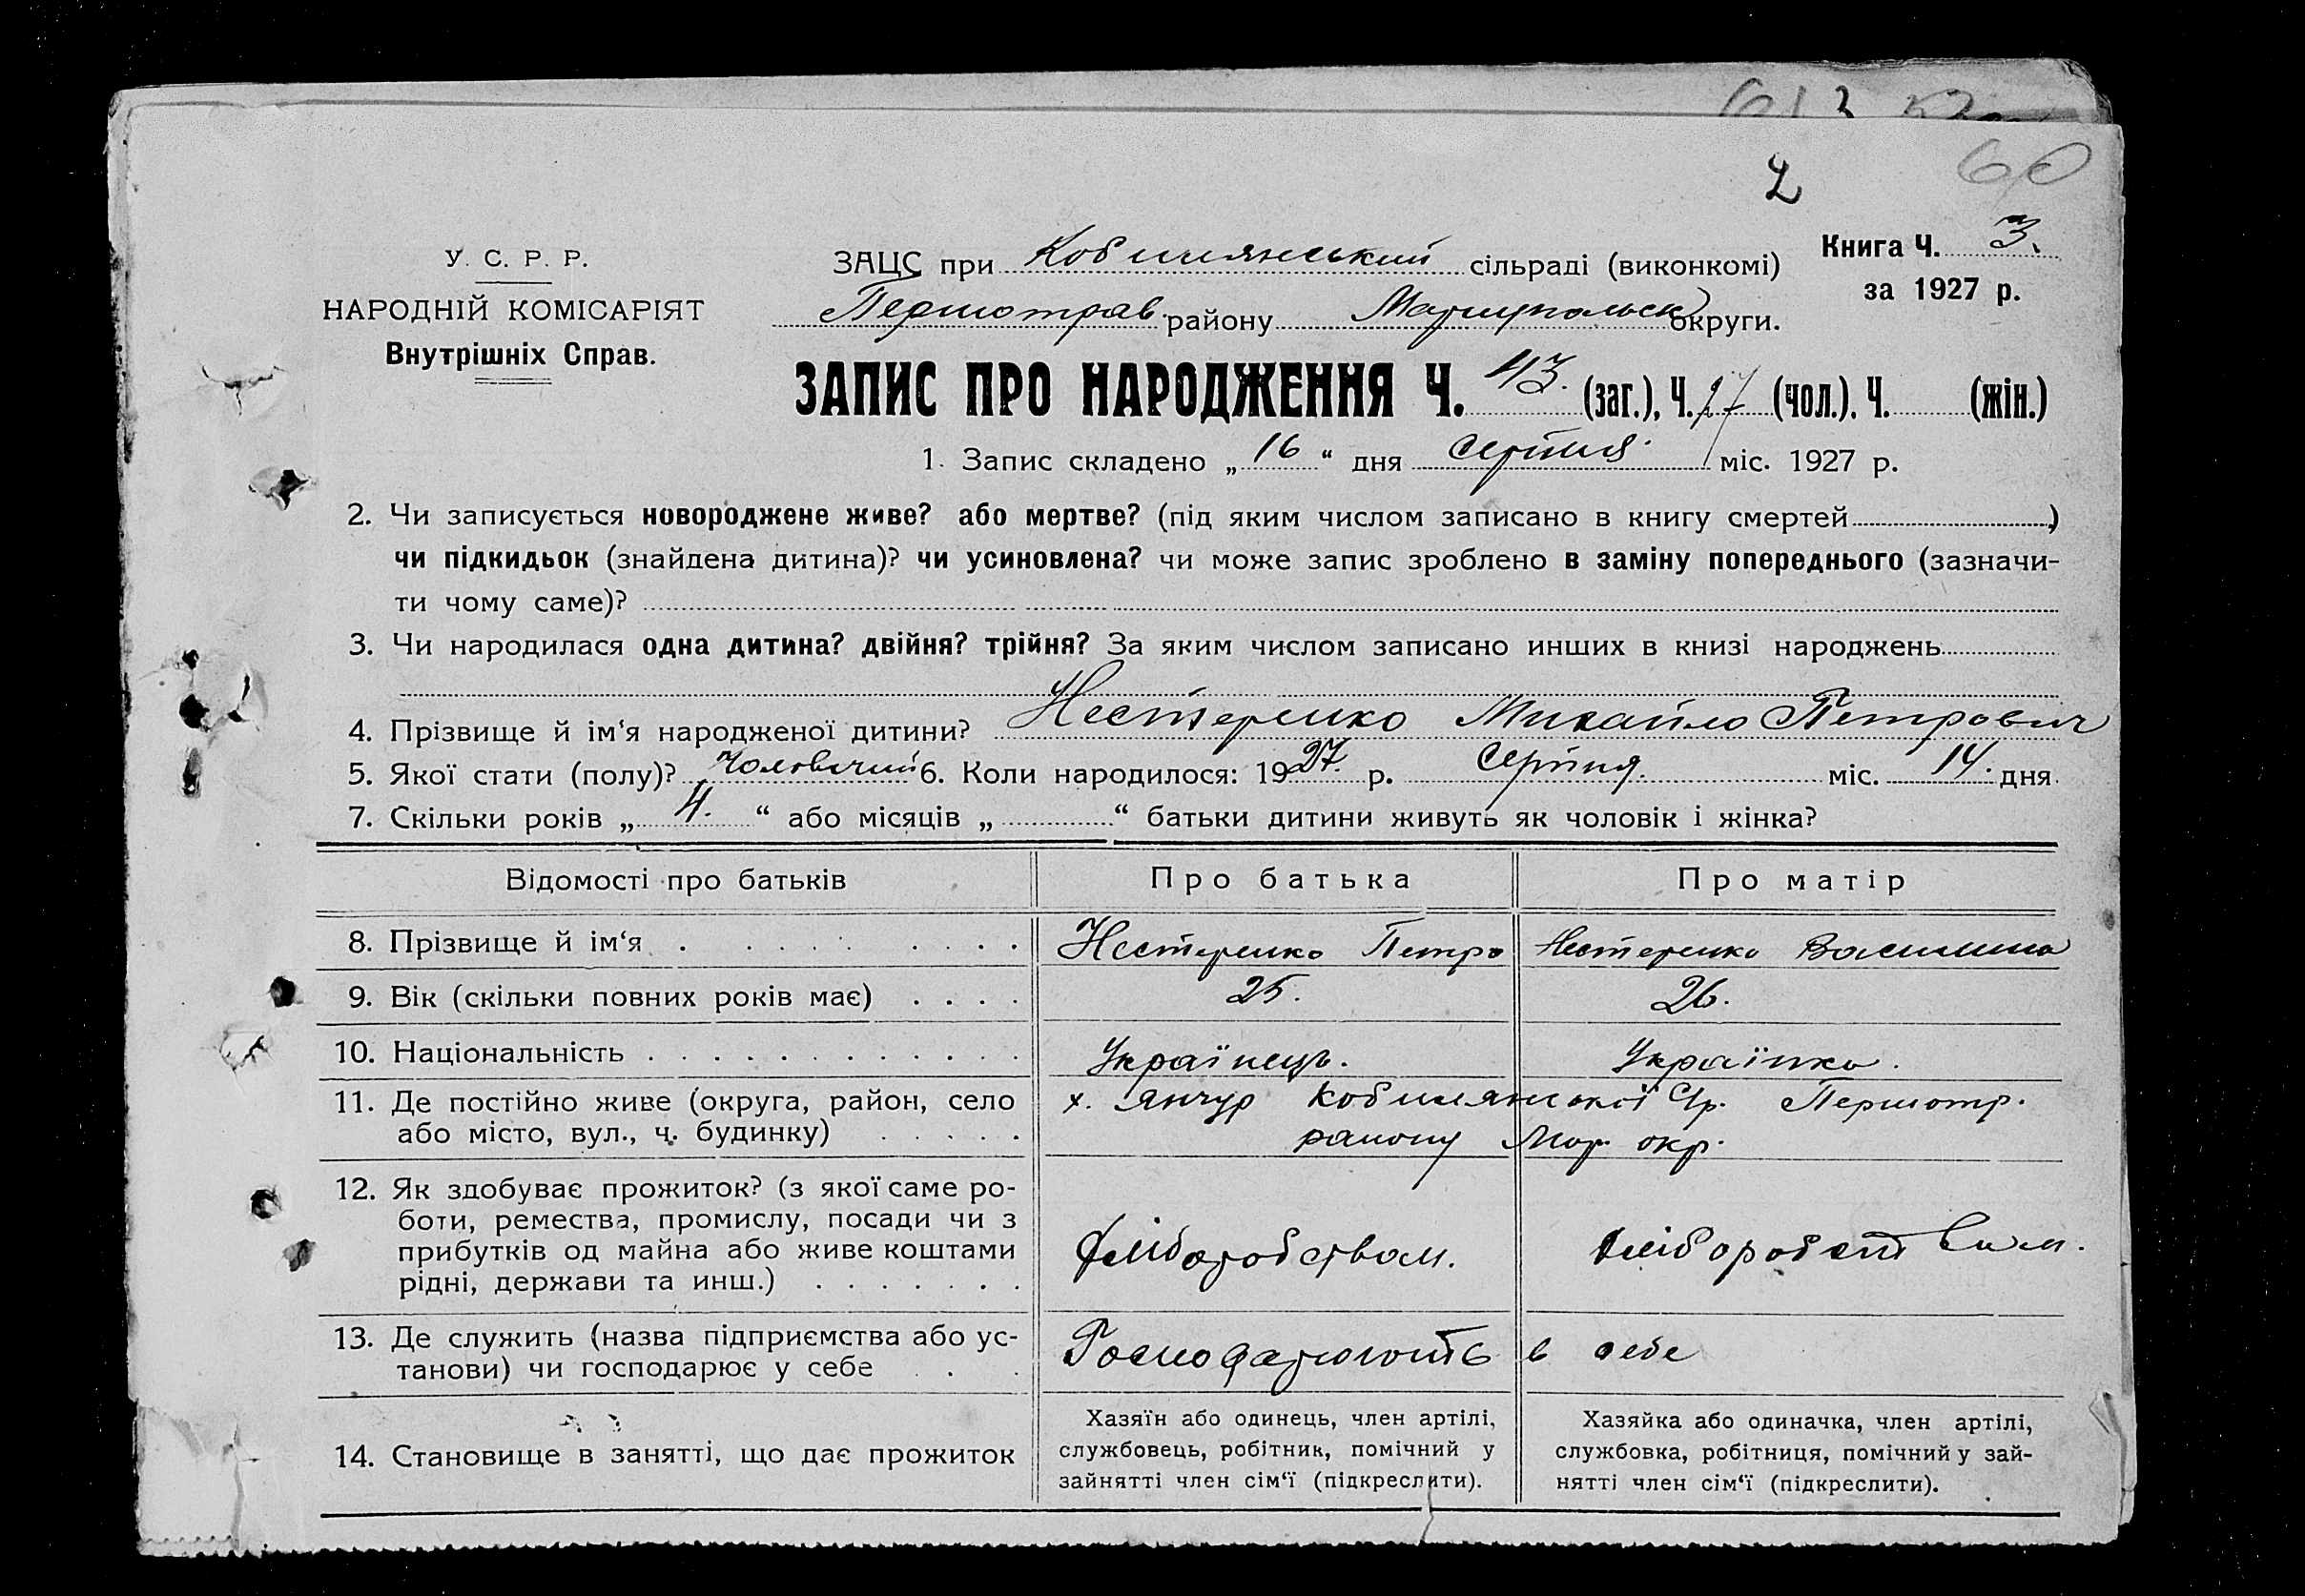 60
2
У. С. Р. Р.
НАРОДНІЙ КОМІСАРІЯТ
Внутрішніх Справ.
Книга Ч. 3.
за 1927 р.
ЗАЦС при Кобилянський сільраді (виконкомі)
Першотрав. району Маріупольськ округи.
ЗАПИС ПРО НАРОДЖЕННЯ Ч. 43. (заг.), Ч. 27 (чол.), Ч. (жін.)
1. Запис складено „ 16 “ дня серпня міс. 1927 р.
2. Чи записується новороджене живе? або мертве? (під яким числом записано в книгу смертей )
чи підкидьок (знайдена дитина)? чи усиновлена? чи може запис зроблено в заміну попереднього (зазначи-
ти чому саме)?
3. Чи народилася одна дитина? двійня? трійня? За яким числом записано инших в книзі народжень
4. Прізвище й ім‘я народженої дитини? Нестеренко Михайло Петрович
5. Якої стати (полу)? Чоловічий 6. Коли народилося: 1927. р. серпня. міс. 14. дня
7. Скільки років „ 4. “ або місяців „ “ батьки дитини живуть як чоловік і жінка?
Відомості про батьків Про батька Про матір
8. Прізвище й ім‘я Нестеренко Петро Нестеренко Василина
9. Вік (скільки повних років має) 25. 26.
10. Національність Українець. Українка.
11. Де постійно живе (округа, район, село х. Янчур Кобилянської С/р. Першотр.
або місто, вул., ч. будинку) району Мар. окр.
12. Як здобуває прожиток? (з якої саме ро-
боти, ремества, промислу, посади чи з
прибутків од майна або живе коштами Хліборобством. Хліборобством.
рідні, держави та инш.)
13. Де служить (назва підприємства або ус- Господарюють в себе
танови) чи господарює у себе
14. Становище в занятті, що дає прожиток
Хазяїн або одинець, член артілі,
службовець, робітник, помічний у
зайнятті член сім‘ї (підкреслити).
Хазяйка або одиначка, член артілі,
службовка, робітниця, помічний у зай-
нятті член сім‘ї (підкреслити).